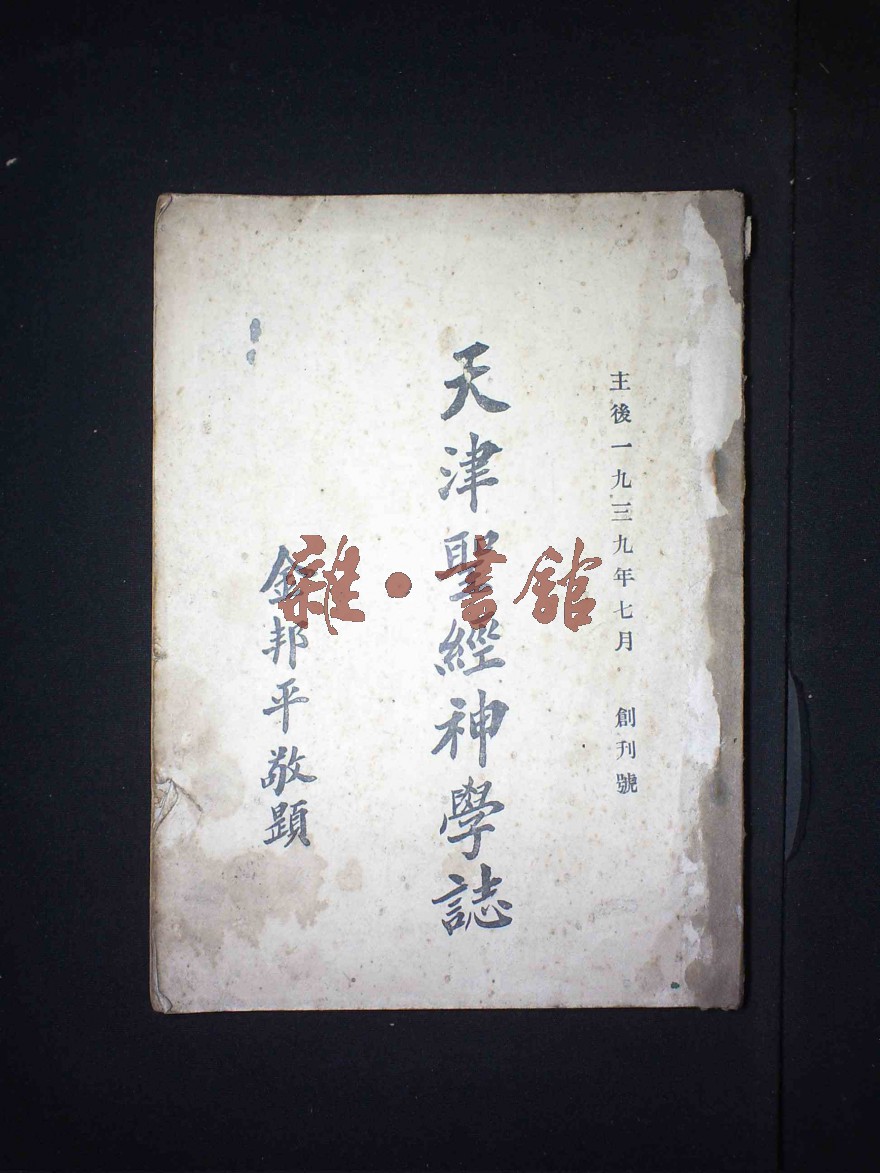 主後一九三九年七月 創刊號
天津聖經神學誌
金邦平敬題
雜·書館